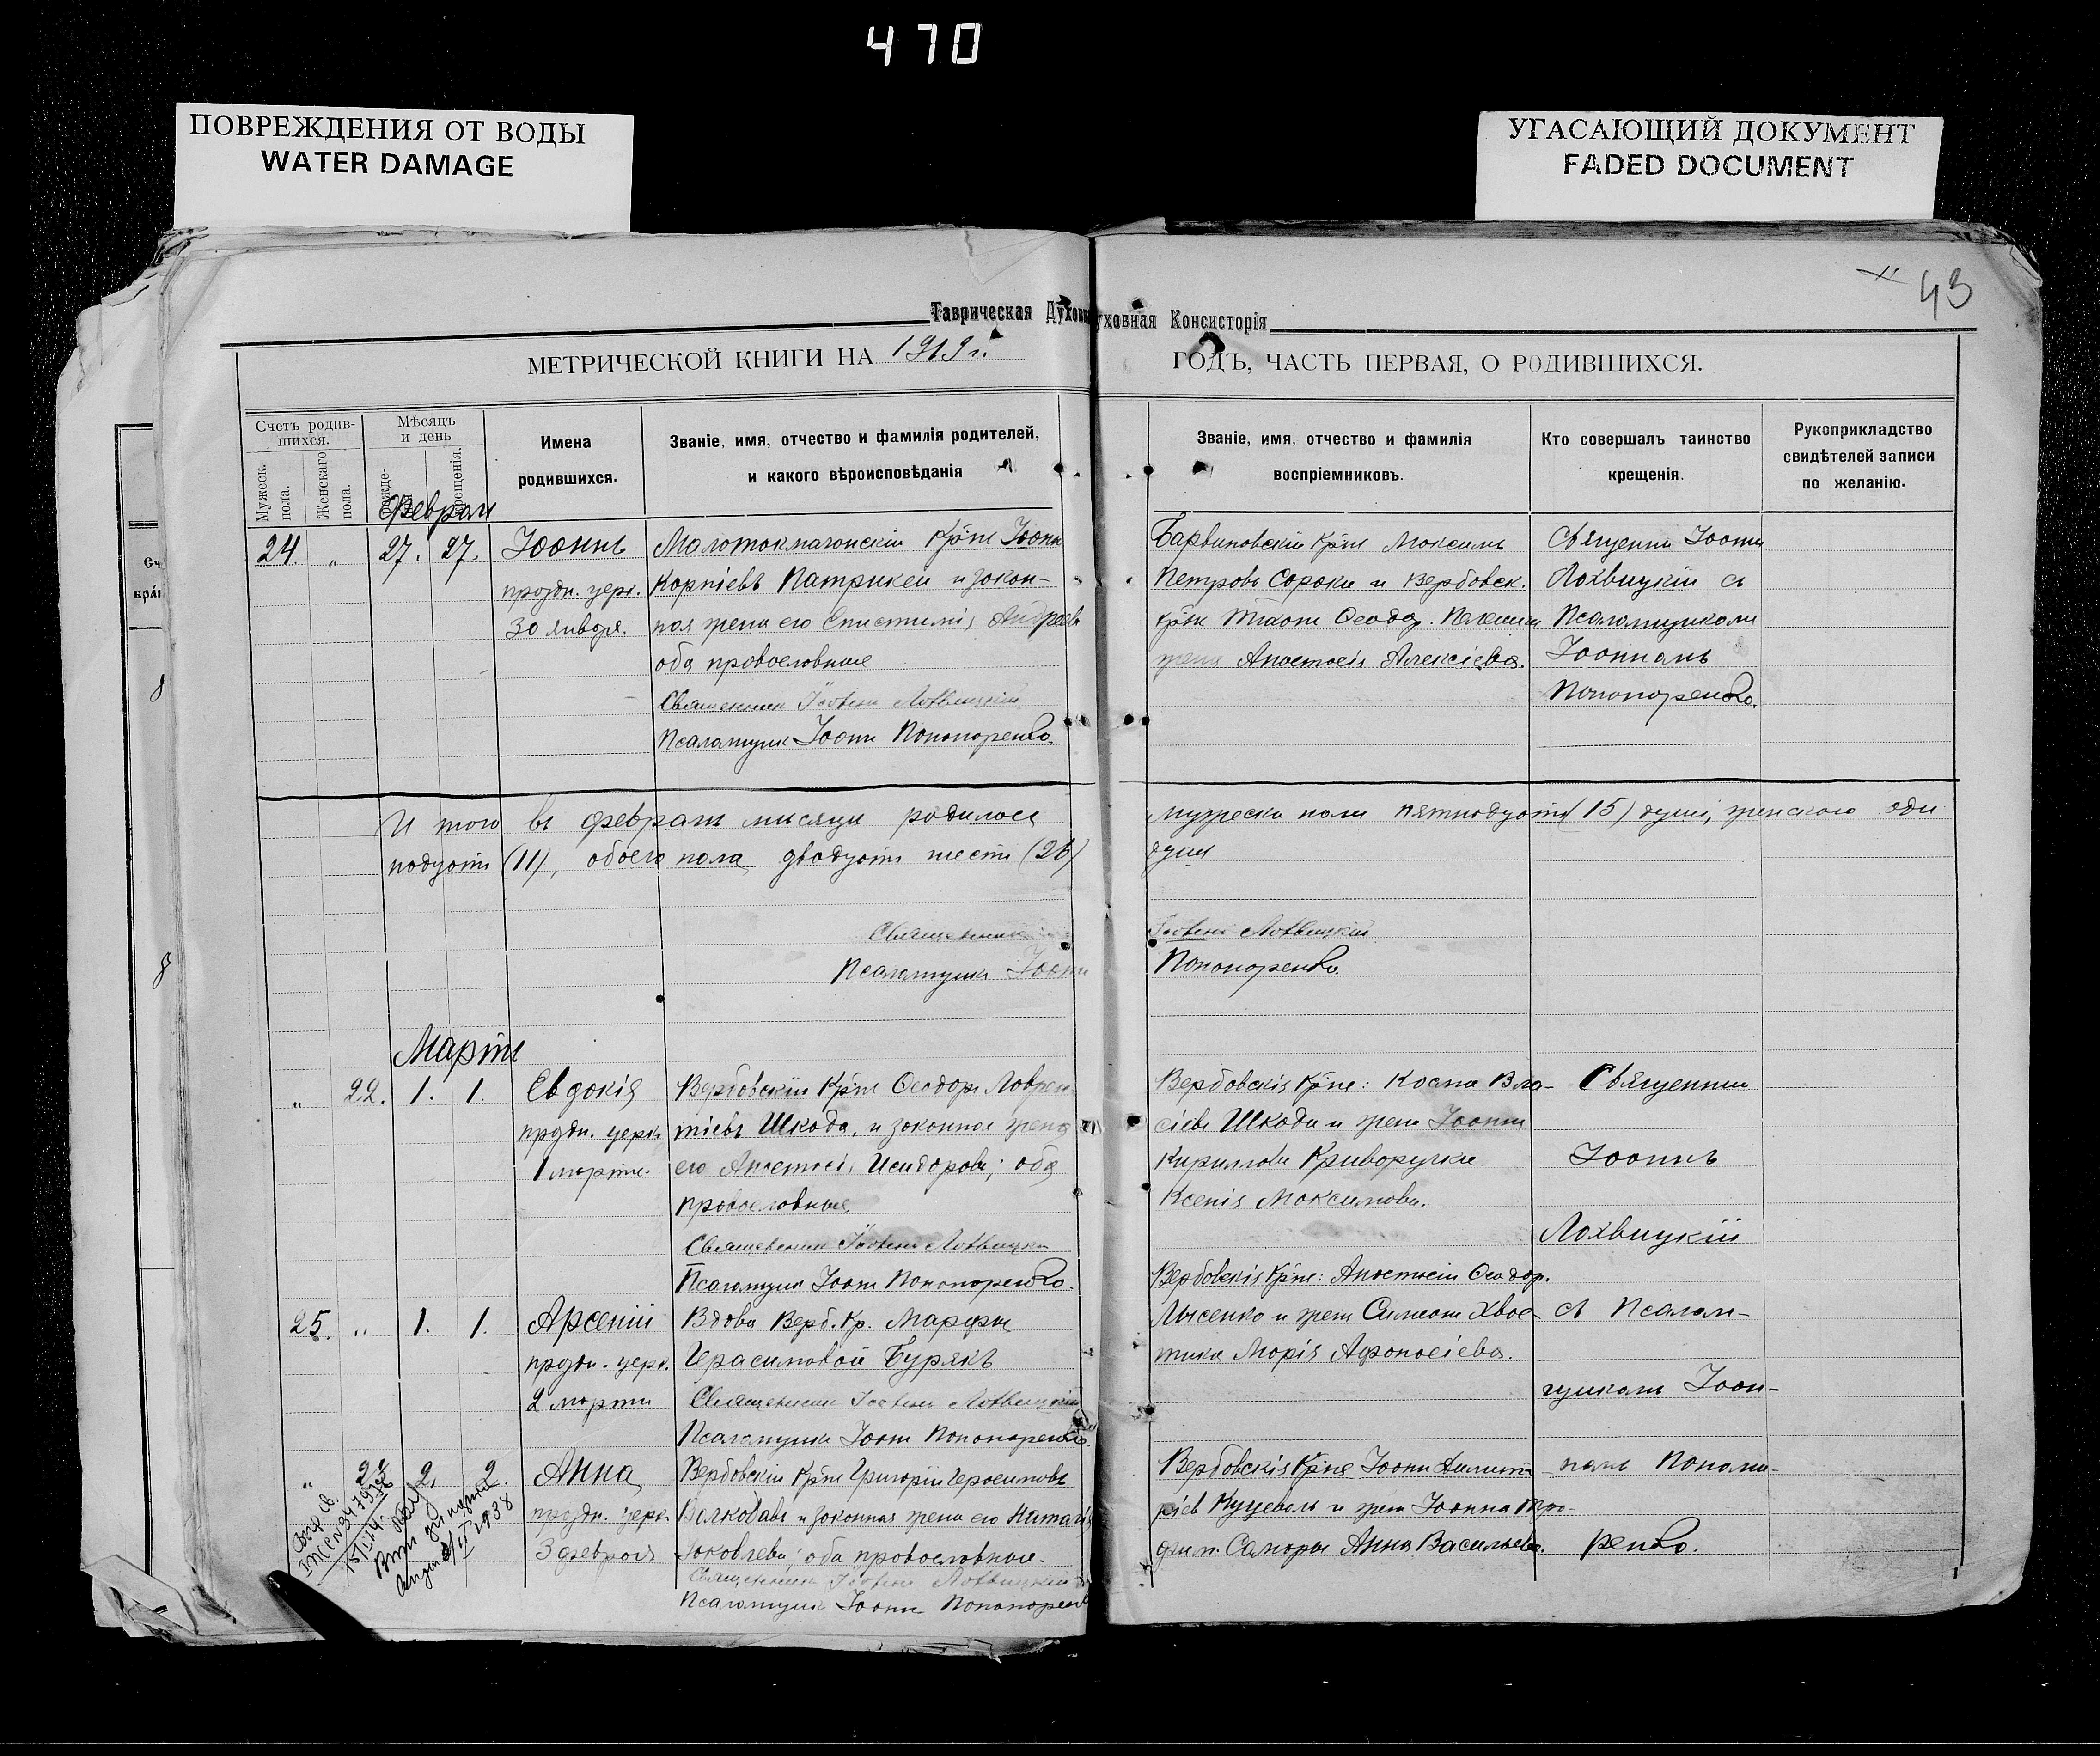 470
ПОВРЕЖДЕНИЯ ОТ ВОДЫ
WATER DAMAGE
УГАСАЮЩИЙ ДОКУМЕНТ
FADED DOCUMENT
43
Таврическая Духовная Консисторія
МЕТРИЧЕСКОЙ КНИГИ НА 1919 г. ГОДЪ, ЧАСТЬ ПЕРВАЯ, О РОДИВШИХСЯ.
Счетъ родив-
шихся.
Мужеск.
пола.
Женскаго
пола.
Мѣсяцъ
и день
рожде-
крещенія.
Имена
родившихся.
Званіе, имя, отчество и фамилія родителей,
и какого вѣроисповѣданія
Званіе, имя, отчество и фамилія
воспріемниковъ.
Кто совершалъ таинство
крещенія.
Рукоприкладство
свидѣтелей записи
по желанію.
Февраль
24. " 27. 27. Іоаннъ
праздн. церк.
30 января.
Малотокмачанскій Кр-нъ Іоаннъ
Карпіевъ Патрикей и закон-
ная жена его Епистимія Андреев
оба православные
Священникъ Іоаннъ Лохвицкій
Псаломщикъ Іоаннъ Пономоренко.
Барвиновскій Кр-нъ Максимъ
Петровъ Сорока и Вербовск.
жена Анастасія Алексіева.
Священникъ Іоаннъ
Лохвицкій съ
Псаломщикомъ
Іоанномъ
Пономоренко.
И того въ февралѣ мѣсяцѣ родилось мужеска пола пятнадцать (15) душъ, женскаго оди
надцать (11), обоего пола двадцать шесть (26) душъ
Священникъ Іоаннъ Лохвицкій
Псаломщикъ Іоаннъ Пономоренко.
Мартъ
" 22. 1. 1. Евдокія
праздн. церк.
1 марта.
Вербовскій Кр-нъ Ѳеодоръ Лаврен
тіевъ Шкода, и законная жена
его Анастасія Исидорова; оба
православные.
Священникъ Іоаннъ Лохвицкій
Псаломщикъ Іоаннъ Пономоренко.
Вербовскія Кр-не: Косма Вла-
сіевъ Шкода и жена Іоанна
Кириллова Криворучки
Ксенія Максимова.
Священникъ
Іоаннъ
Лохвицкій
25. " 1. 1. Арсеній
праздн. церк.
2 марта
Вдова Верб. Кр. Марфы
Герасимовой Бурякъ
Священникъ Іоаннъ Лохвицкій
Псаломщикъ Іоаннъ Пономоренко.
Вербовскія Кр-не: Анастасій Ѳеодор.
Лысенко и жена Симеона Хвос-
тика Марія Аѳанасіева.
съ Псалом-
щикомъ Іоан-
" 2. 2. Анна
праздн. церк.
3 февраля
Вербовскій Кр-нъ Григорій Герасимовъ
и законная жена его Наталія
Яковлева; оба православные.
Священникъ Іоаннъ Лохвицкій
Псаломщикъ Іоаннъ Пономоренко
Вербовскія Кр-не Іоаннъ Димит
ріевъ и жена Іоанна Тро-
фим. Саморы Анна Васильева.
номъ Пономо-
ренко.
1938